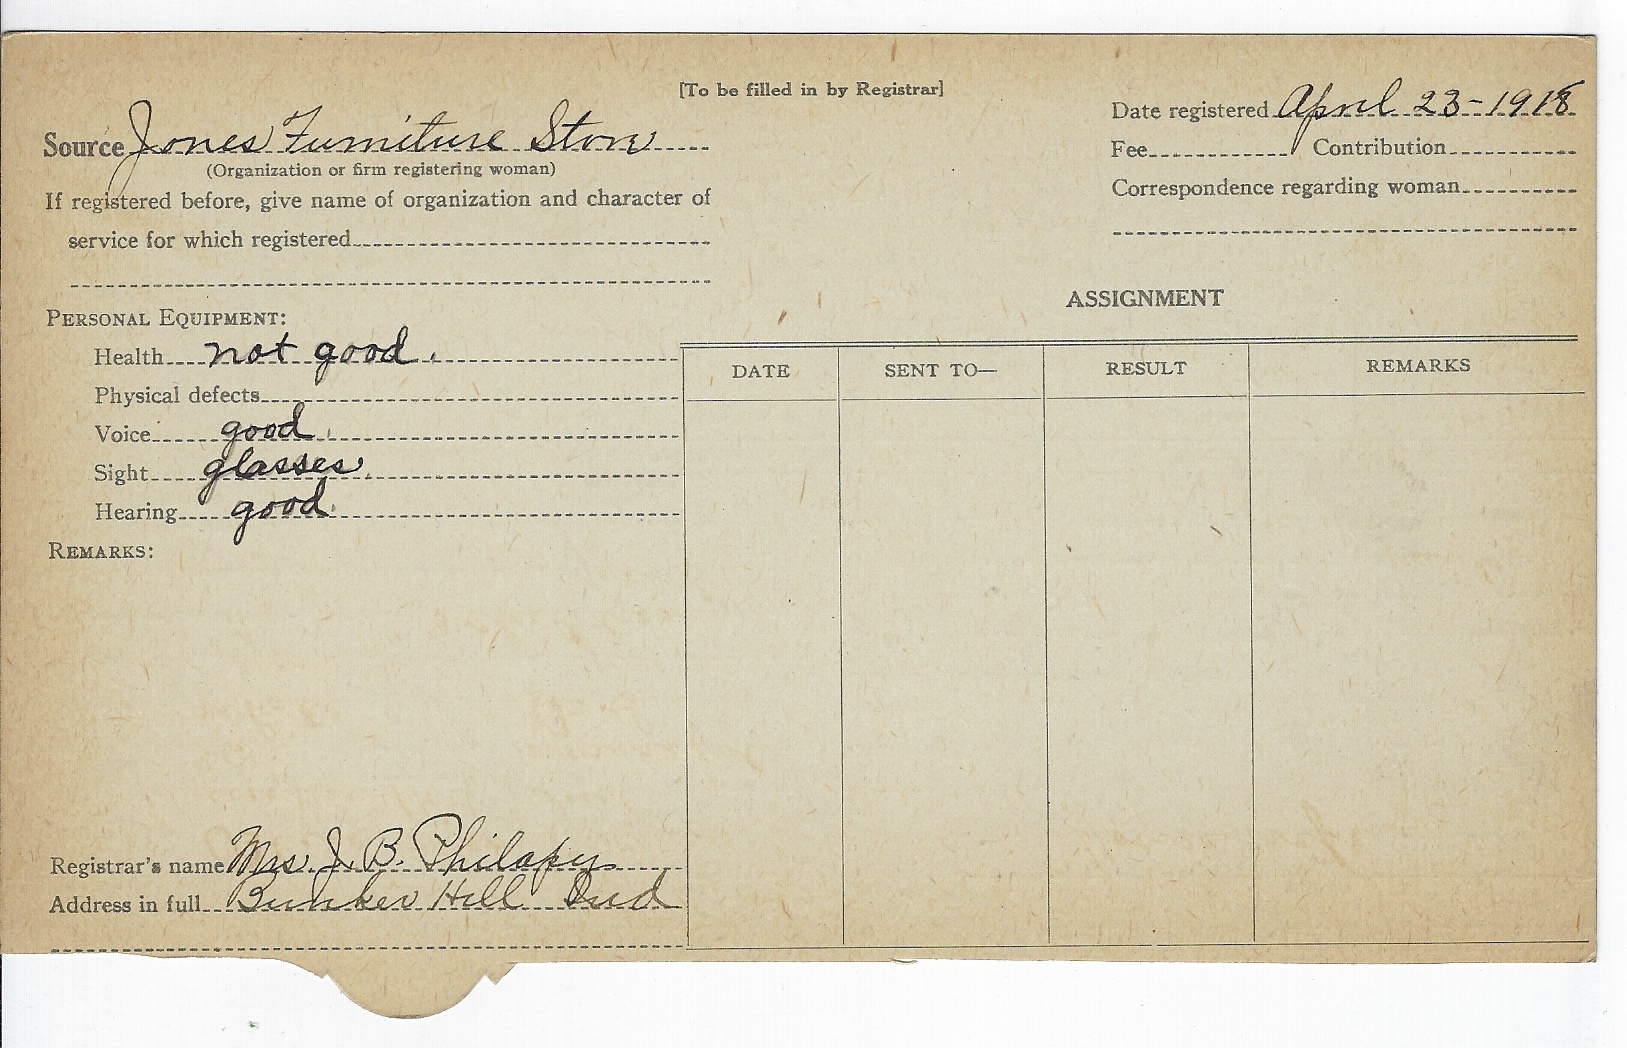 [To be filled in by Registrar]
Date registered April 23-1918
Source Jones Furniture Store
Fee Contribution
(Organization or firm registering woman)
Correspondence regarding woman
If registered before, give name of organization and character of
service for which registered
ASSIGNMENT
PERSONAL EQUIPMENT:
Health not good.
DATE SENT TO— RESULT REMARKS
Physical defects
Voice good.
Sight glasses.
Hearing good.
REMARKS:
Registrar's name Mrs. J. B. Philapy
Address in full Bunker Hill Ind